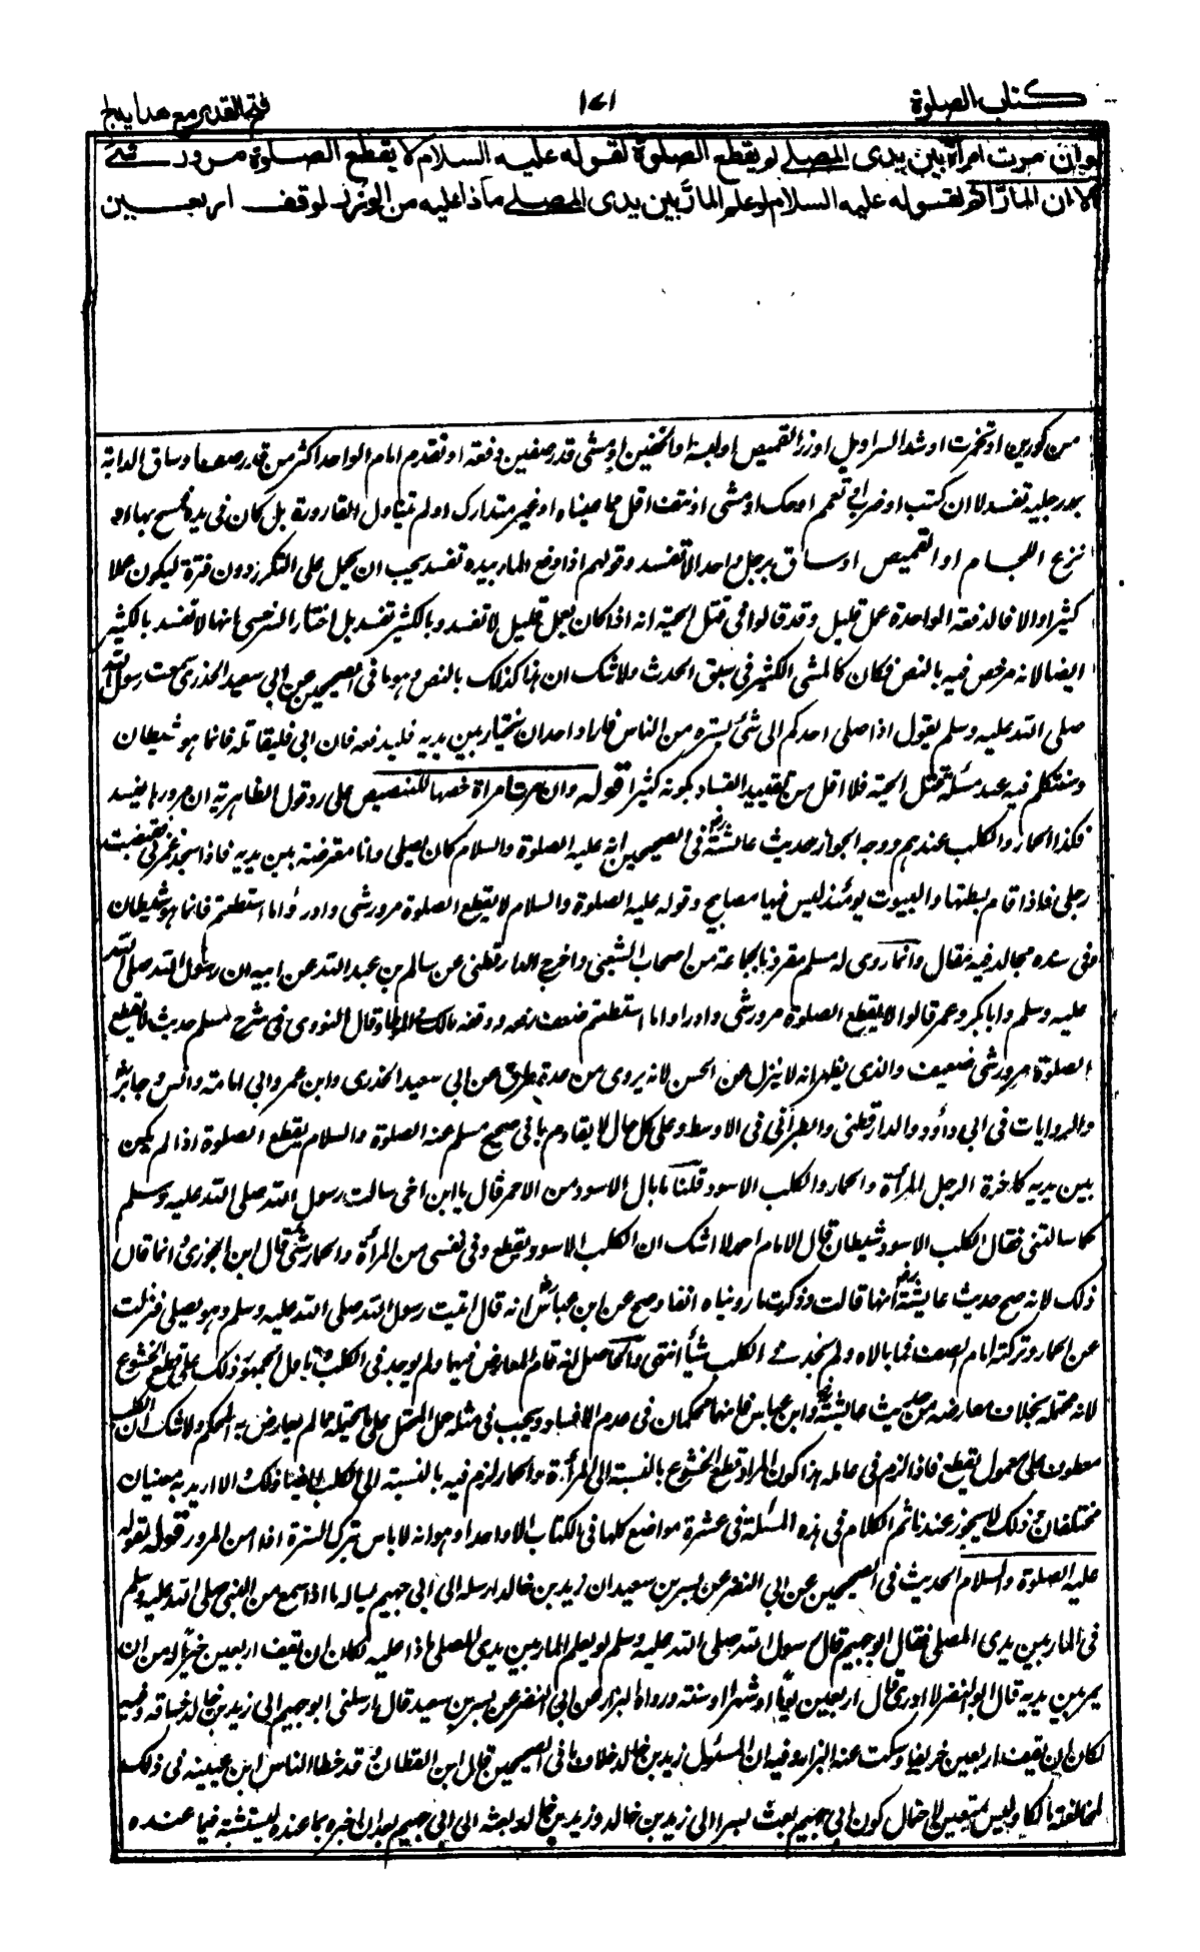 كتاب الصلوة
١٧١
فتح القدير مع هدايه ج
وان مرت امرأة بين يدى المصلے لم يقطع الصلوة لقوله عليه السلام لا يقطع الصلوة مرور شئے
الا ان المارّ اثم لقوله عليه السلام لو علم المارّ بين يدى المصلے ماذا عليه من الوزر لوقف اربعين
من كورين او تخمرت او شد السراويل او زر القميص او لبسه او الخفين او مشى قدر صفين دفعة او تقدم امام الواحد اكثر من قدر صفها وساق الدابة
بمد رجليه تفسد لا ان كتب او ضرب او تعمم او حك او مشى او نتف اقل مما عيناه او غير متدارك او لم تيناول القارورة بل كان فى يده فمسح بها او
نزع اللجام او القميص او ساق برجل واحد لا تفسد وقولهم اذا دفع المار بيده تفسد يجب ان يحمل على التكرر دون فترة ليكون عملا
كثيرا والا فالدفعة الواحدة عمل قليل وقد قالوا فى قتل الحية انه اذا كان بعمل قليل لا تفسد وبالكثير تفسد بل اختار السرخسى انها لا تفسد بالكثير
ايضا لانه مرخص فيه بالنص فكان كالمشى الكثير فى سبق الحدث ولا شك ان هذا كذلك بالنص وهو ما فى الصحيحين عن ابى سعيد الخدرى سمعت رسول الله
صلى الله عليه وسلم يقول اذا صلى احدكم الى شئ يستره من الناس فاراد احد ان يجتاز بين يديه فليدفعه فان ابى فليقاتله فانما هو شيطان
وسنتكلم فيه عند مسئلة قتل الحية فلا اقل من تقييد الفساد بكونه كثيرا قوله وان مرت امراة خصها للتنصيص على رد قول الظاهرية ان مرورها يفسد
فكذا الحمار والكلب عندهم ووجه الجواز حديث عائشة رض فى الصحيحين انه عليه الصلوة والسلام كان يصلى وانا معترضة بين يديه فاذا سجد غمزنى فقبضت
رجلى فاذا قام بسطتها والبيوت يومئذ ليس فيها مصابيح وقوله عليه الصلوة والسلام لا يقطع الصلوة مرور شئ وادرؤا ما استطعتم فانما هو شيطان
وفى سنده مجالد فيه مقال وانما روى له مسلم مقرونا بجماعة من اصحاب الشعبى واخرج الدارقطنى عن سالم بن عبد الله عن ابيه ان رسول الله صلى الله
عليه وسلم وابا بكر وعمر قالوا لا يقطع الصلوة مرور شئ وادراوا ما استطعتم ضعف رفعه ووقفه مالك فى الموطا وقال النووى فى شرح مسلم حديث لا يقطع
الصلوة مرور شئ ضعيف والذى يظهر انه لا ينزل عن الحسن لانه يروى من عدة طرق عن ابى سعيد الخدرى وابن عمر وابى امامة وانس وجابر
والروايات فى ابى داؤد والدارقطنى والطبرانى فى الاوسط وعلى كل حال لا يقاوم ما فى صحيح مسلم عنه الصلوة والسلام يقطع الصلوة اذا لم يكن
بين يديه كاخرة الرحل المرأة والحمار والكلب الاسود قلنا ما بال الاسود من الاحمر قال يا ابن اخى سالت رسول الله صلى الله عليه وسلم
كما سالتنى فقال الكلب الاسود شيطان قال الامام احمد لا اشك ان الكلب الاسود يقطع وفى نفسى من المرأة والحمار شئ قال ابن الجوزى انما قال
ذلك لانه صح حديث عايشة رض انها قالت وذكرت ما رويناه انفا وصح عن ابن عباس انه قال اتيت رسول الله صلى الله عليه وسلم وهو يصلى فنزلت
عن الحمار وتركته امام الصف فما بالاه ولم نجد فے الكلب شيأ انتهى والحاصل انه قام المعارض فيهما ولم يوجد فى الكلب تامل الجمهور ذلك على قطع الخشوع
لانه محتمله بخلاف معارضه من حديث عائشة وابن عباس فانهما محكمان فى عدم الافساد ويجب فى مثله حمل المحتمل على ما يحتمله مما لم يعارض به المحكم ولا شك ان الكلب
معطوف على معمول يقطع فاذا لزم فى عامله هذا كون المراد قطع الخشوع بالنسبة الى المرأة والحمار لزم فيه بالنسبة الى الكلب ايضا ذلك والا اريد به معنيان
مختلفان وذلك لا يجوز عندنا ثم الكلام فى هذه المسئلة فى عشرة مواضع كلها فى الكتاب الا واحدا وهو انه لا باس بترك السترة اذا امن المرور قوله لقوله
عليه الصلوة والسلام الحديث فى الصحيحين عن ابى النضر عن بسر بن سعيد ان زيد بن خالد ارسله الى ابى جهيم يساله ما اذا سمع من النبى صلى الله عليه وسلم
فى المار بين يدى المصلى فقال ابو جهيم قال رسول الله صلى الله عليه وسلم لو يعلم المار بين يدى المصلى ماذا عليه لكان ان يقف اربعين خيرا له من ان
يمر بين يديه قال ابو النضر لا ادرى قال اربعين يوما او شهرا او سنة ورواه البزار عن ابى النضر عن بسر بن سعيد قال ارسلنى ابو جهيم الى زيد بن خالد فساقه وفيه
لكان ان يقف اربعين خريفا وسكت عنه البزار وفيه ان المسئول زيد بن خالد خلاف ما فى الصحيحين قال ابن القطان قد خطأ الناس ابن عيينه فى ذلك
لمخالفته مالكا وليس بمتعين لاحتمال كون ابى جهيم بعث بسرا الى زيد بن خالد وزيد بن خالد بعثه الى ابى جهيم بعد ان اخبره بما عنده ليستثبته فيما عنده